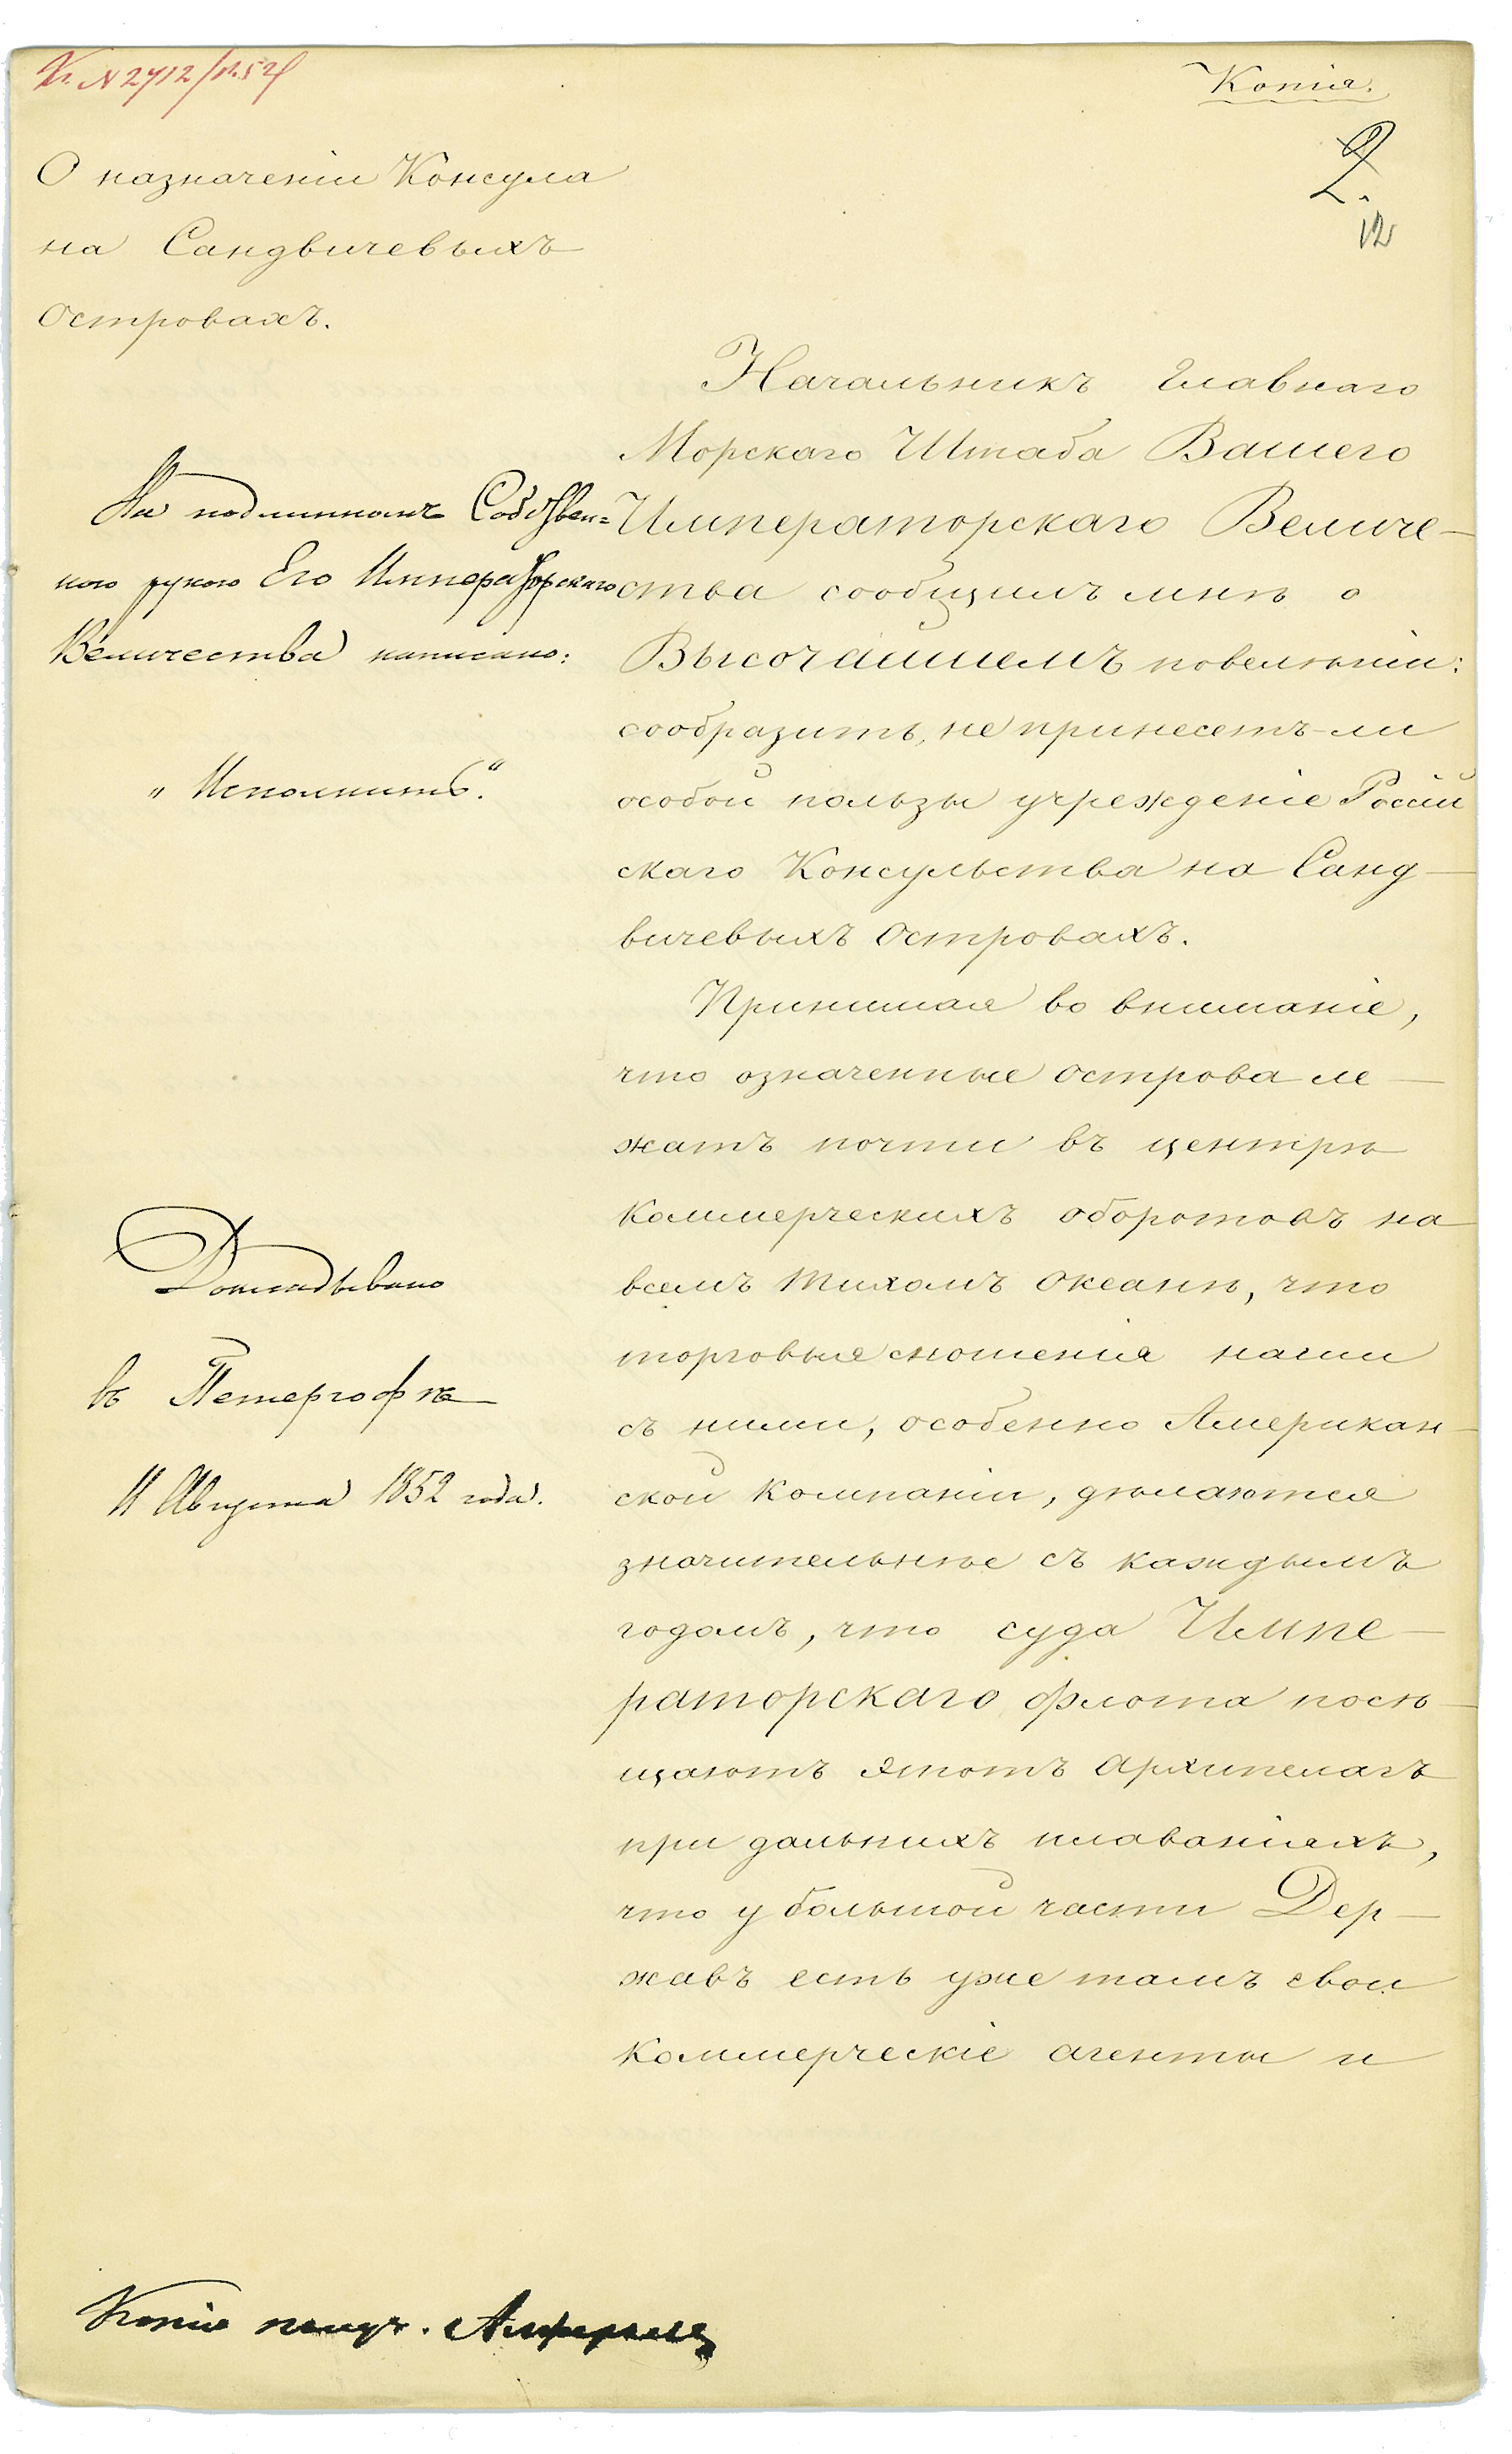 Копія.
2.
12
О назначеніи Консула
на Сандвичевыхъ
островахъ.
На подлинномъ Собствен=
ною рукою Его Императорскаго
Величества написано:
„Исполнить“.
Докладывано
въ Петергофѣ
11 Августа 1852 года.
Начальникъ Главнаго
Морскаго Штаба Вашего
Императорскаго Величе-
ства сообщилъ мнѣ о
Высочайшемъ повелѣніи:
сообразить, не принесетъ-ли
особой пользы учрежденіе Россій
скаго Консульства на Санд-
вичевыхъ островахъ.
Принимая во вниманіе,
что означенные острова ле-
жатъ почти въ центрѣ
коммерческихъ оборотовъ на
всемъ Тихомъ океанѣ, что
торговыя сношенія наши
съ ними, особенно Американ-
ской компаніи, дѣлаются
значительнѣе съ каждымъ
годомъ, что суда Импе-
раторскаго флота посѣ-
щаютъ этотъ архипелагъ
при дальнихъ плаваніяхъ,
что у большой части Дер-
жавъ есть уже тамъ свои
коммерческіе агенты и
Копія